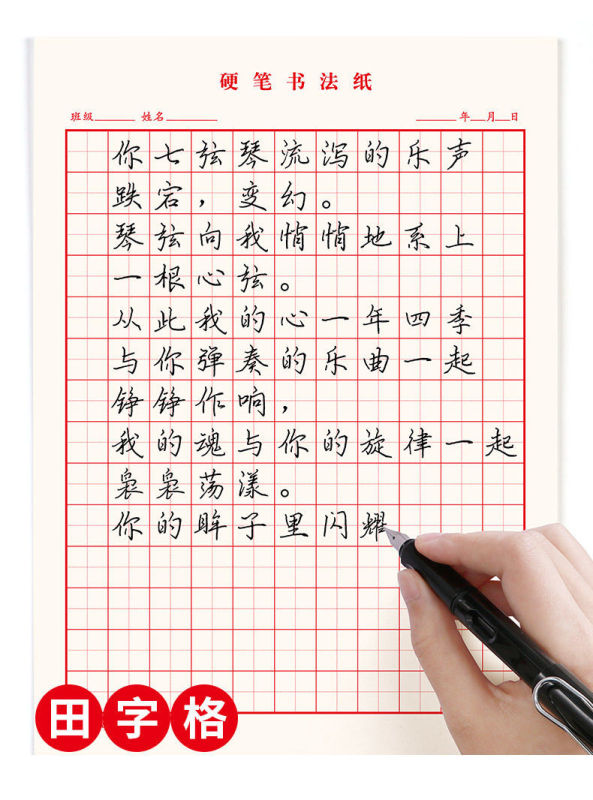 硬笔书法纸
班级 姓名 年 月 日
你七弦琴流泻的乐声
跌宕，变幻。
琴弦向我悄悄地系上
一根心弦。
从此我的心一年四季
与你弹奏的乐曲一起
铮铮作响，
我的魂与你的旋律一起
袅袅荡漾。
你的眸子里闪耀
田字格